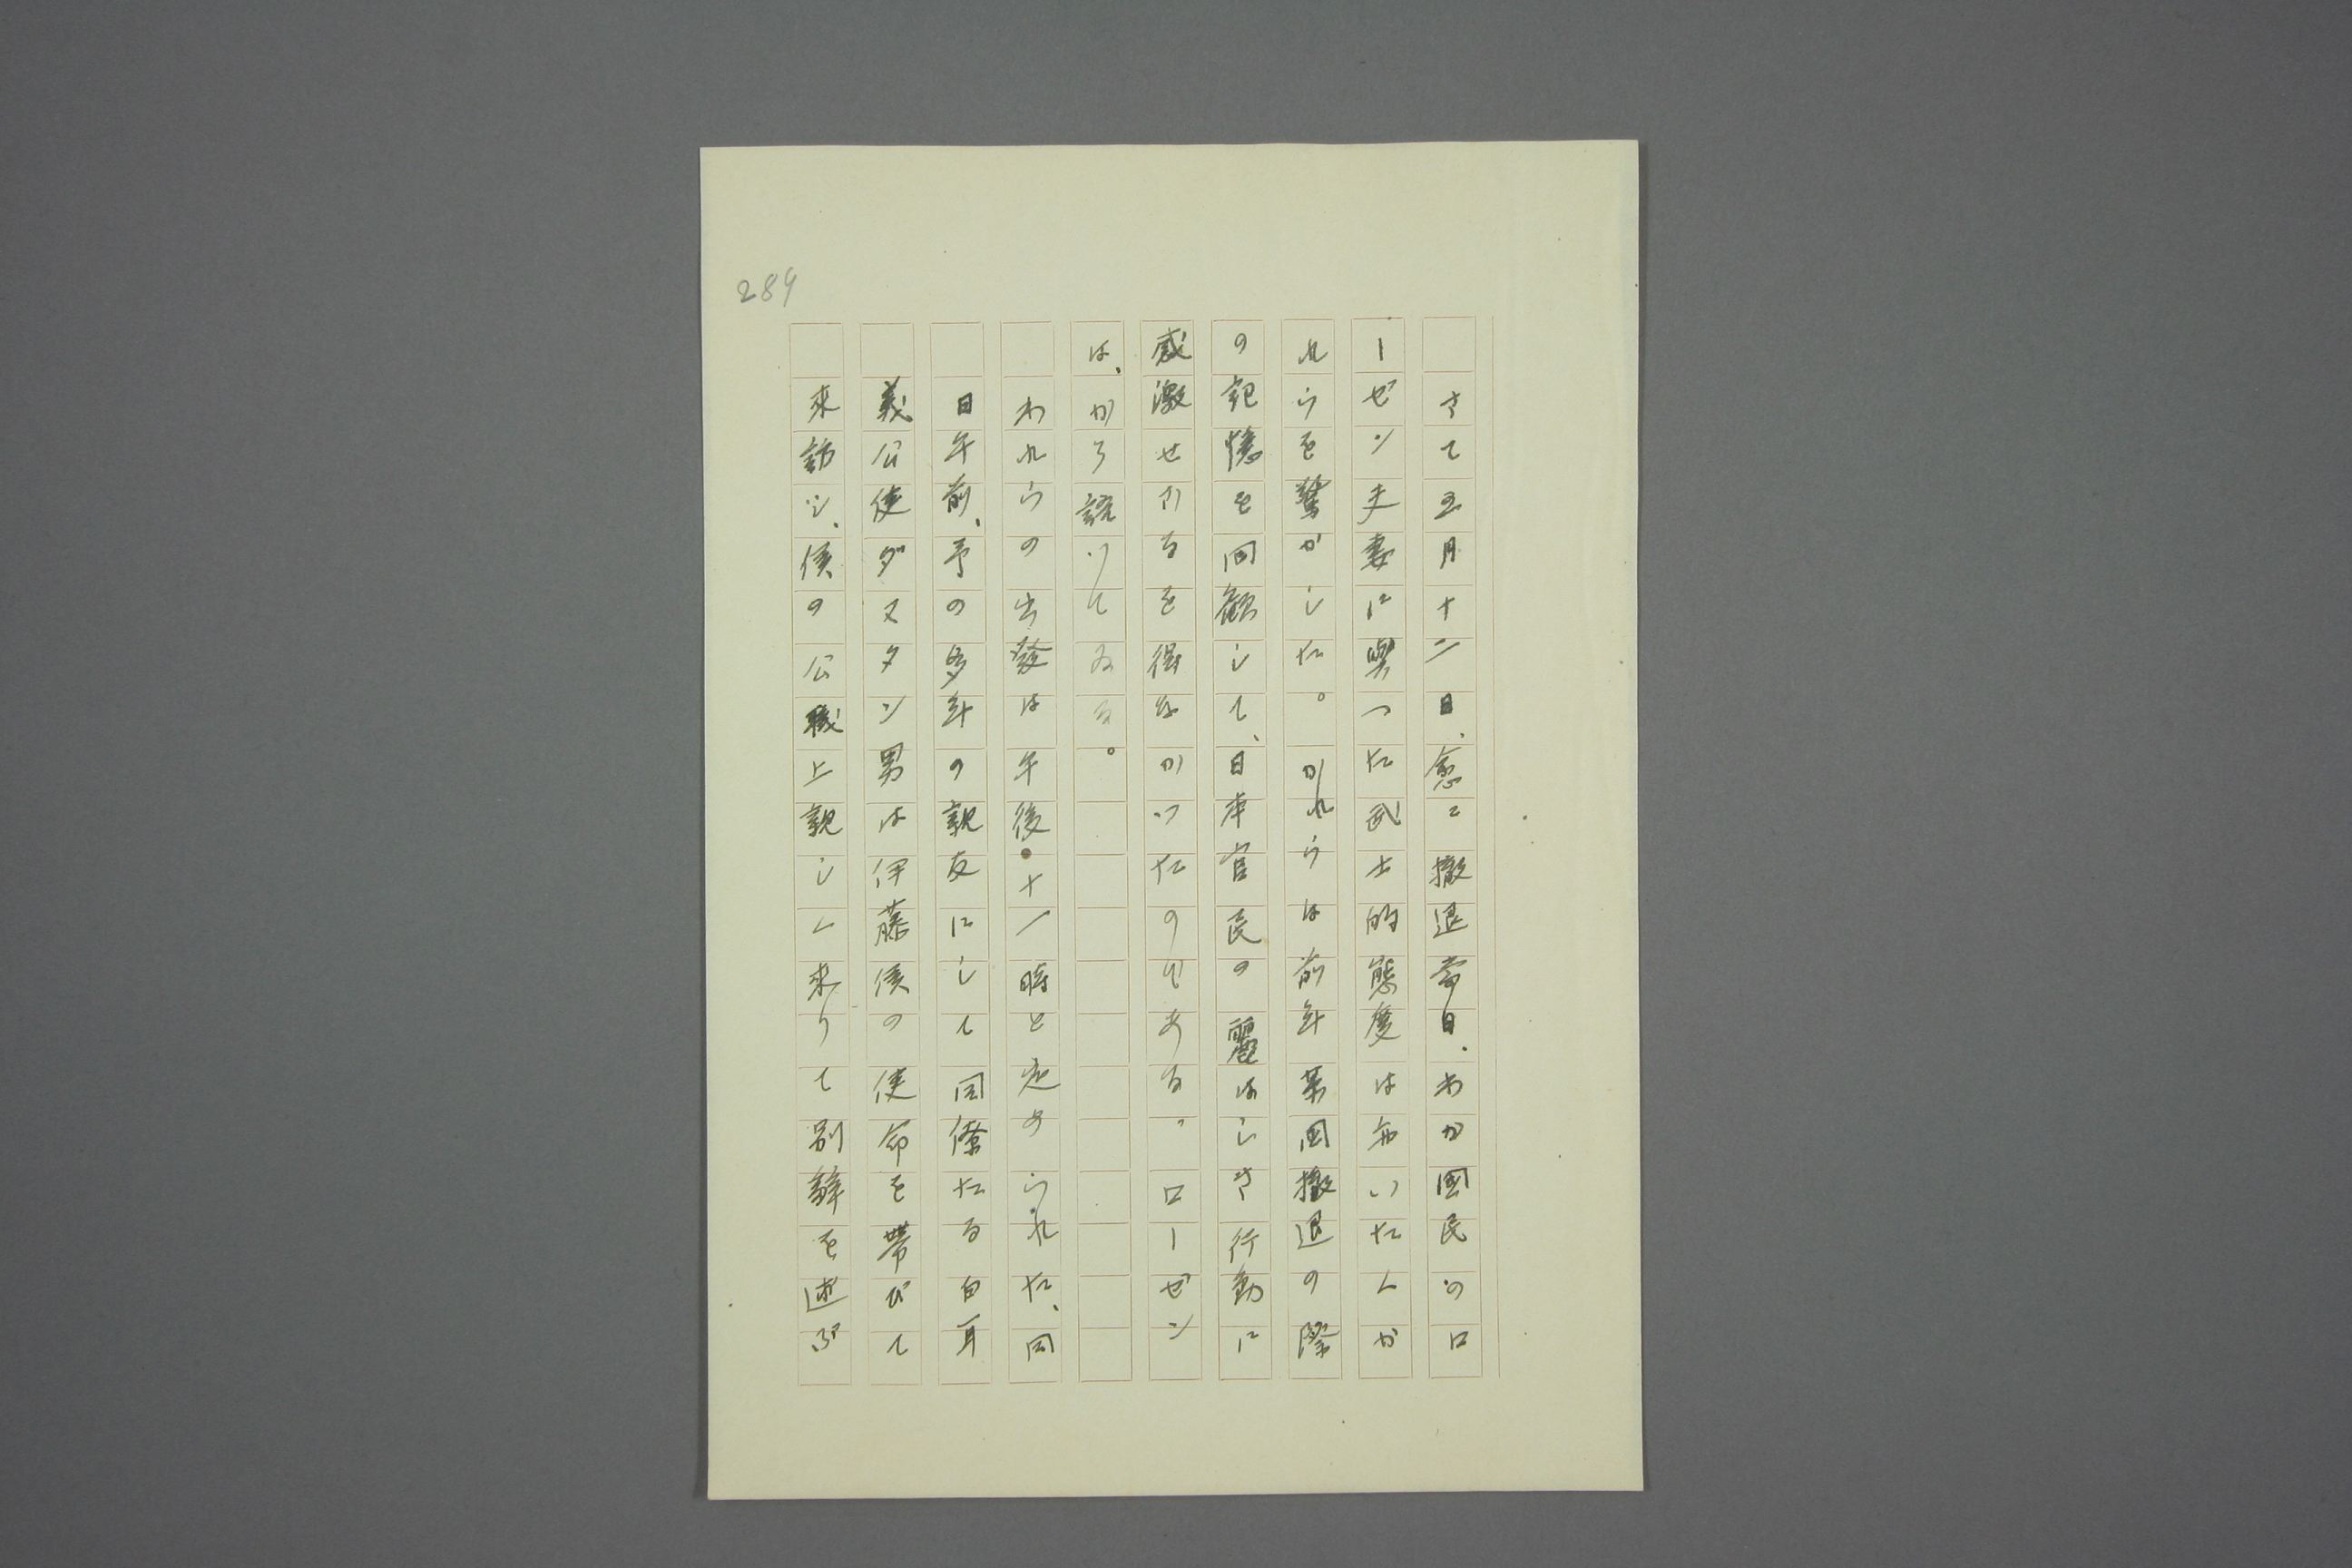 289
さて五月十二日、愈々撤退当日、わが国民のロ
ーゼン夫妻に與つた武士的態度は毎いたくか
れらを驚かした。かれらは前年某国撤退の際
の記憶を回顧して、日本官民の麗はしき行動に
感激せざるを得なかつたのである。ローゼン
は、かう語つてゐる。
われらの出發は午後十一時と定められた、同
日午前、予の多年の親友にして同僚たる白耳
義公使ダヌタン男は伊藤侯の使命を帯びて
來訪し、侯の公職上親しく來りて別辭を述ぶ